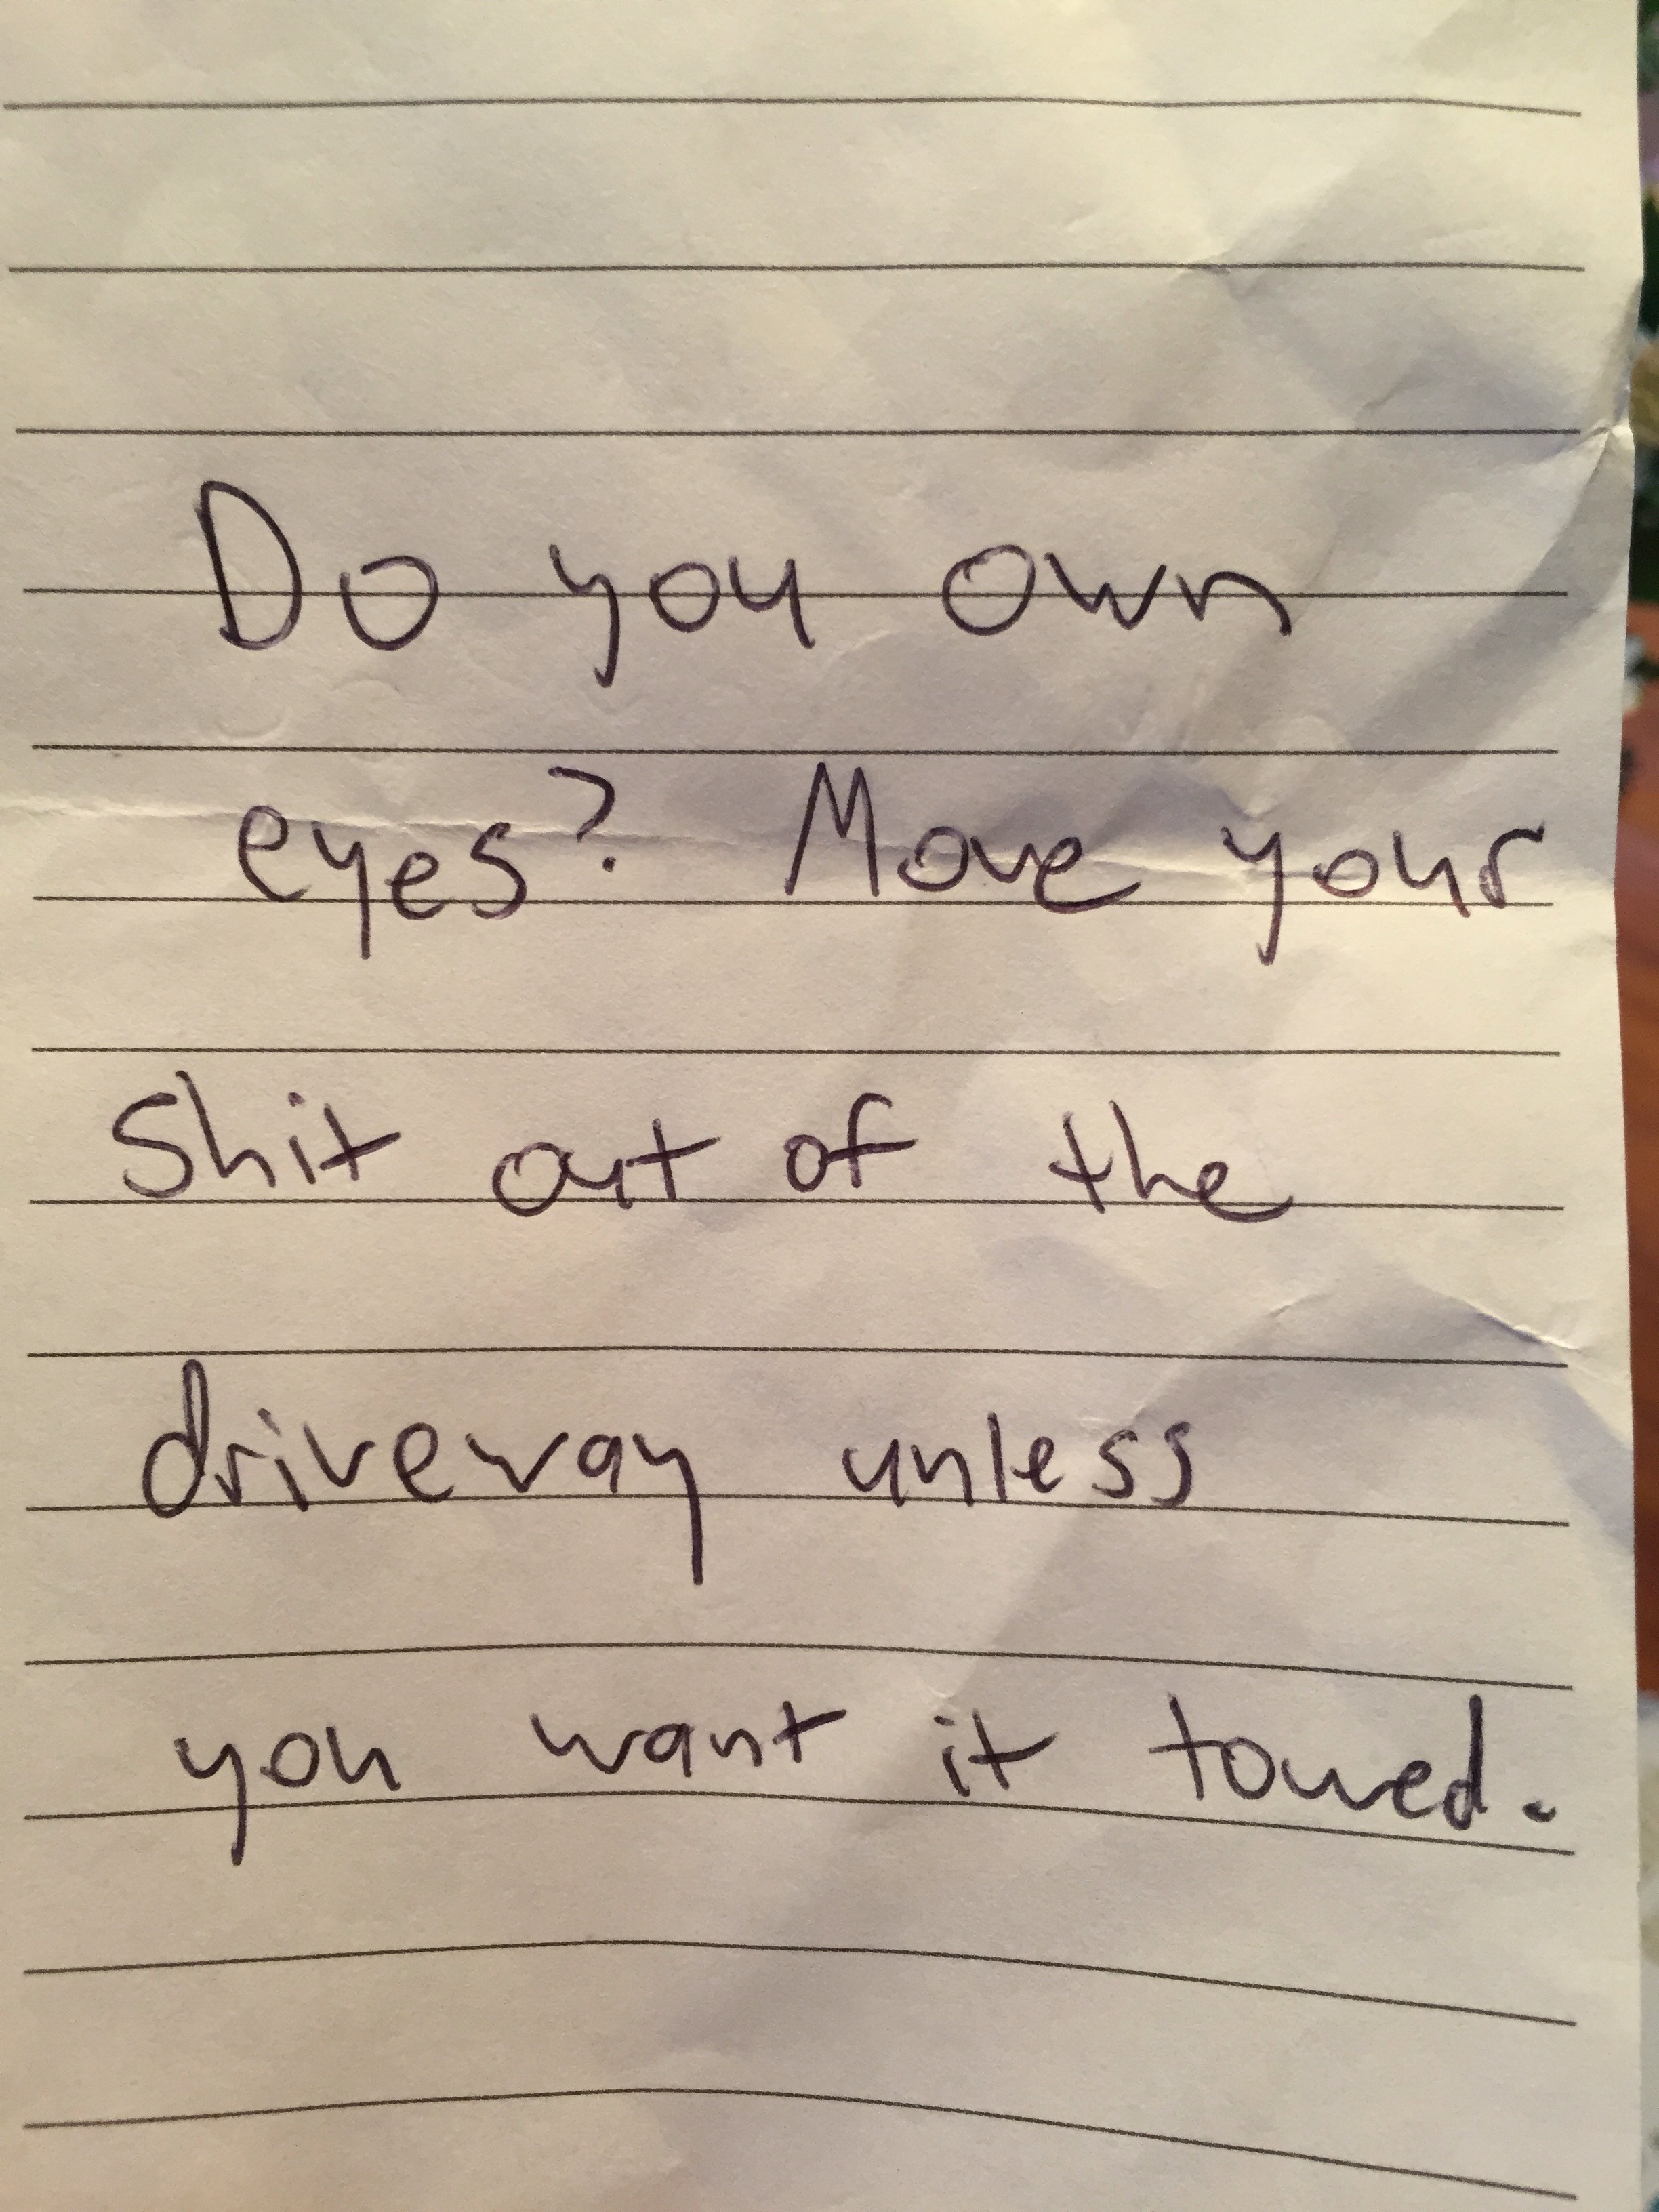 Do you own
eyes? Move your
Shit out of the
driveway unless
you want it towed.